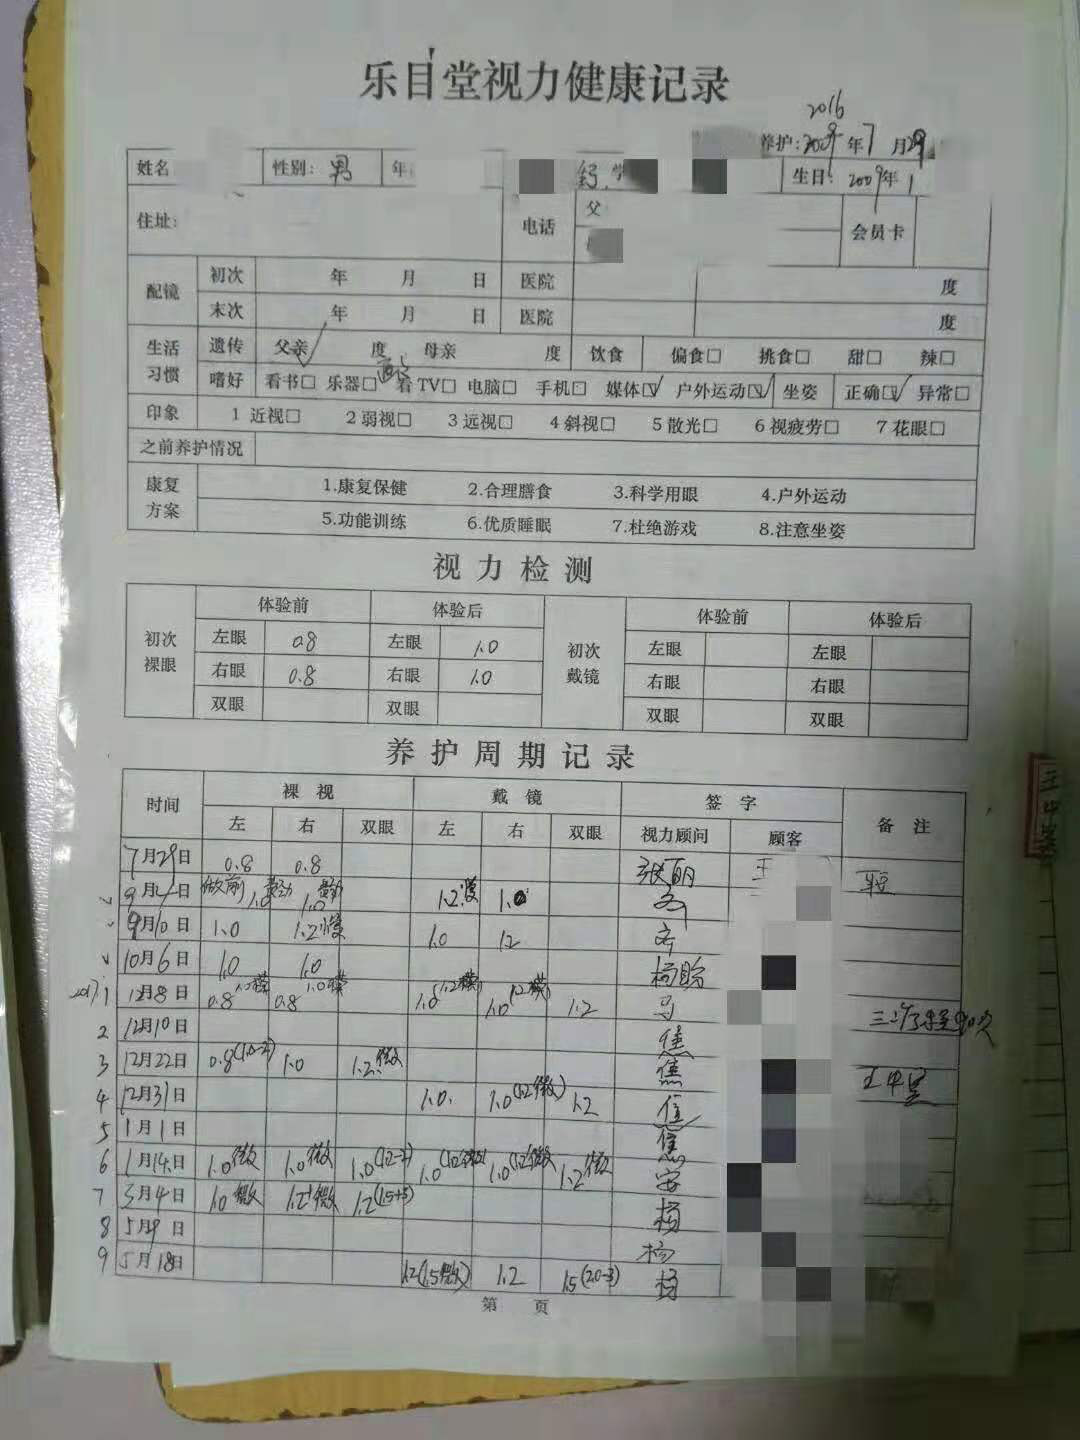 乐目堂视力健康记录
2016
养护:2009年7月29
姓名 性别: 男 年 生日: 2009年1
住址: 电话 父 会员卡
配镜 初次 年 月 日 医院 度
末次 年 月 日 医院 度
生活习惯 遗传 父亲 度 母亲 度 饮食 偏食□ 挑食□ 甜□ 辣□
嗜好 看书□ 乐器□ 看TV□ 电脑□ 手机□ 媒体☑ 户外运动☑ 坐姿 正确☑ 异常□
印象 1 近视□ 2 弱视□ 3 远视□ 4 斜视□ 5 散光□ 6 视疲劳□ 7 花眼□
之前养护情况
康复方案 1.康复保健 2.合理膳食 3.科学用眼 4.户外运动
5.功能训练 6.优质睡眠 7.杜绝游戏 8.注意坐姿
视力检测
初次裸眼 体验前 体验后 初次戴镜 体验前 体验后
左眼 0.8 左眼 1.0 左眼 左眼
右眼 0.8 右眼 1.0 右眼 右眼
双眼 双眼 双眼 双眼
养护周期记录
时间 裸视 戴镜 签字 备注
左 右 双眼 左 右 双眼 视力顾问 顾客
7月29日 0.8 0.8 张丽 王
9月 日 做前 1.0 1.0 1.2 1.0
9月10日 1.0 1.2 1.0 1.2
10月6日 1.0 1.0 杨
2017.1 12月8日 0.8 0.8 1.0 1.0 1.2 马
2 12月10日 焦
3 12月22日 0.8(1.0-2) 1.0 1.2微 焦
4 12月31日 1.0. 1.0(1.2微) 1.2 焦
5 1月1日 焦
6 1月14日 1.0微 1.0微 1.0(1.2-2) 1.0 1.0(1.2微) 1.2微 安
7 3月4日 1.0微 1.2微 1.2(1.5+3) 杨
8 5月9日 杨
9 5月18日 1.2(1.5微) 1.2 1.5(2.0-3) 杨
第 页